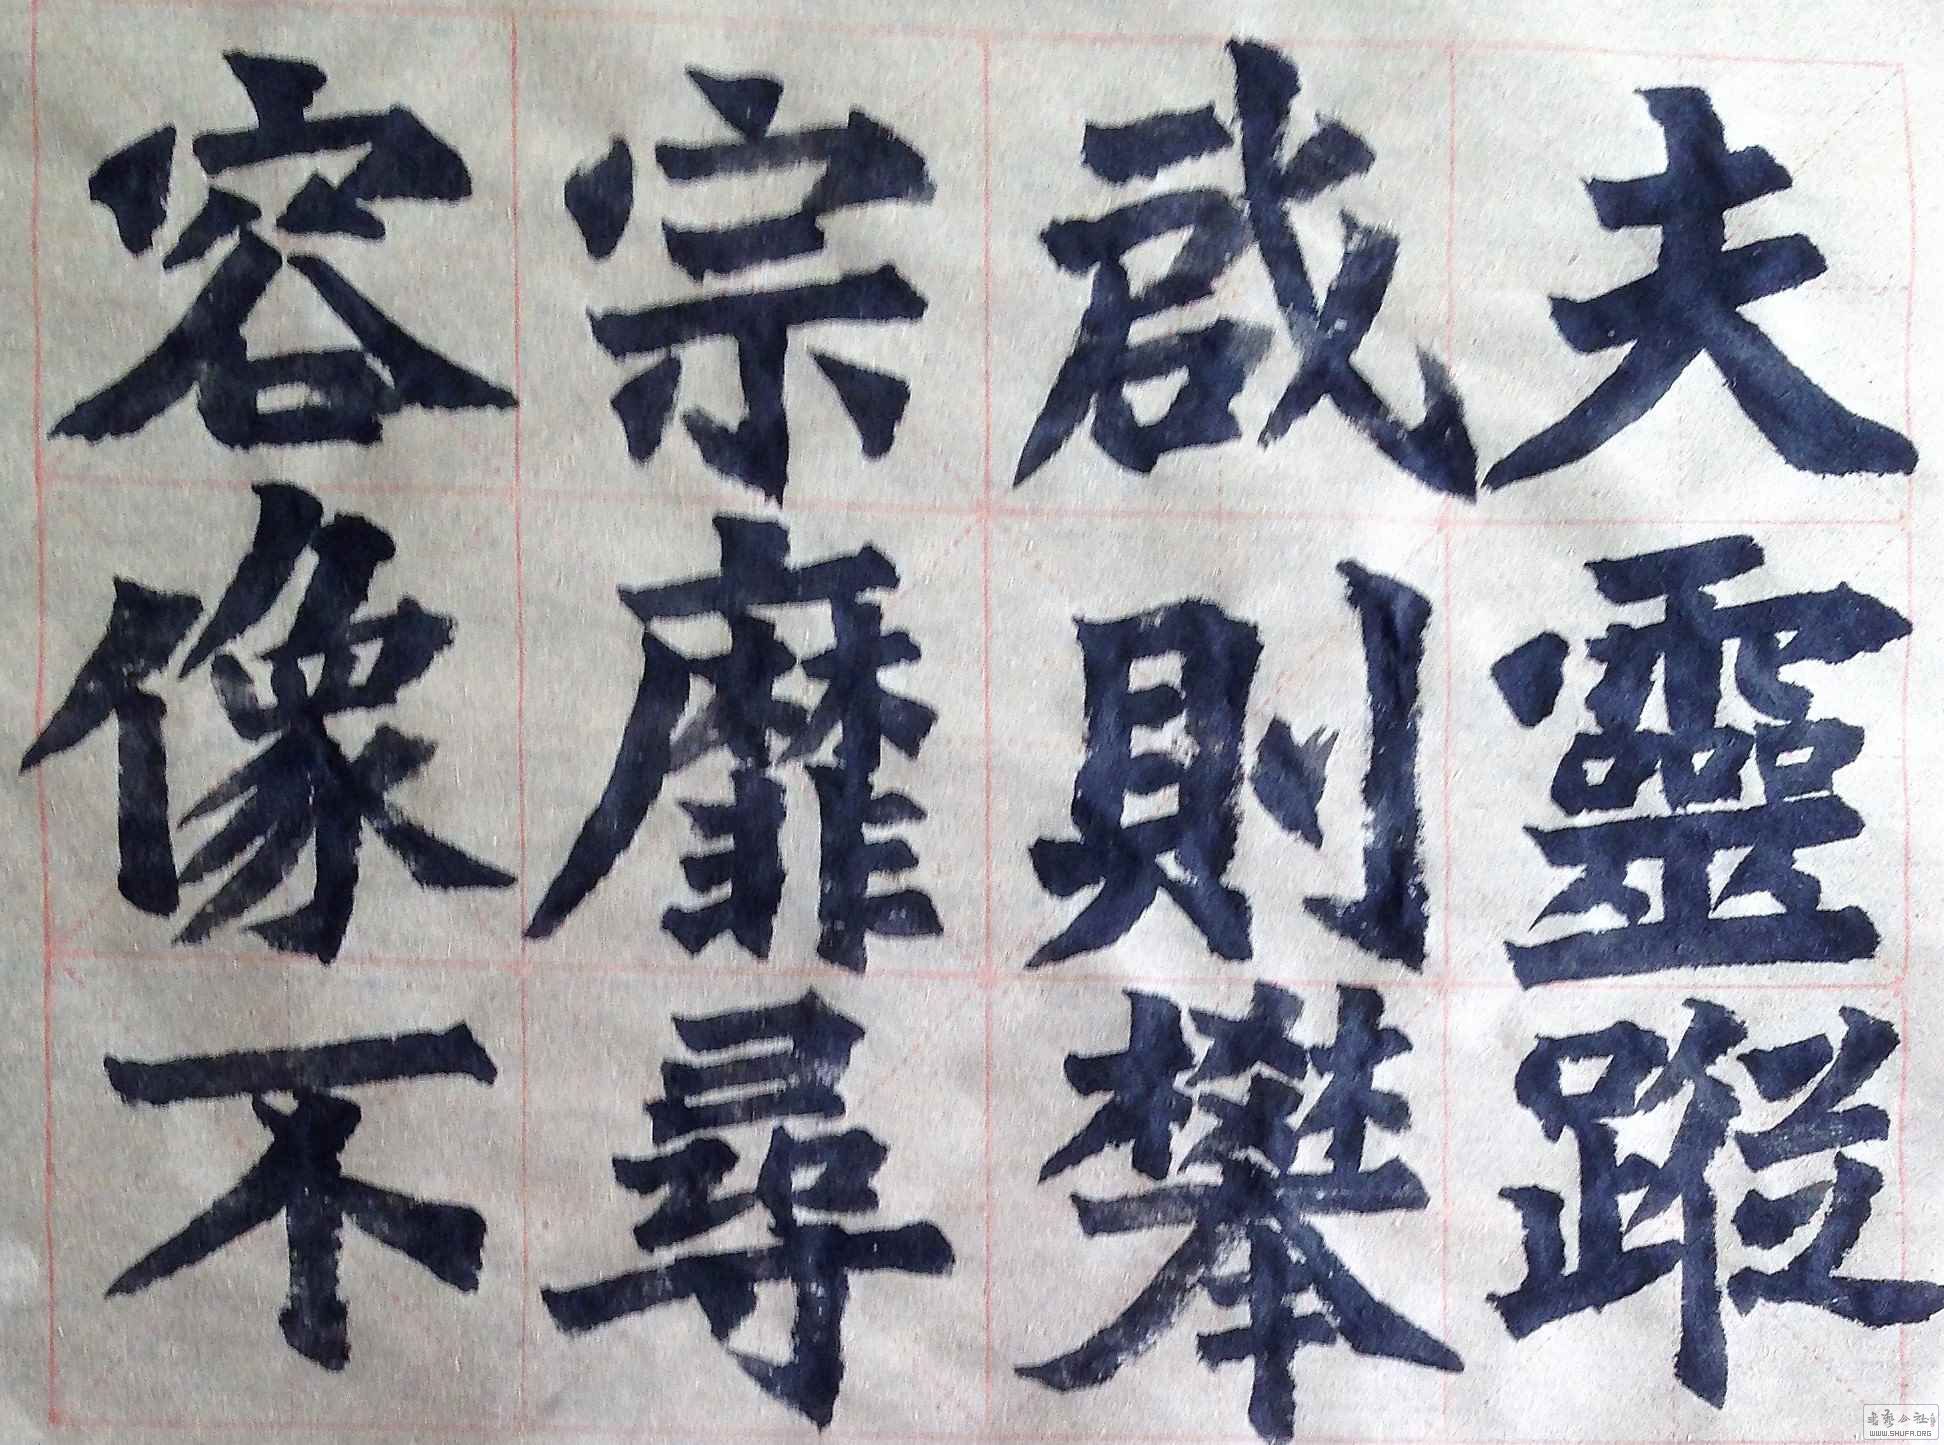 夫靈蹤
啟則攀
宗靡尋
容像不
书艺公社
WWW.SHUFA.ORG